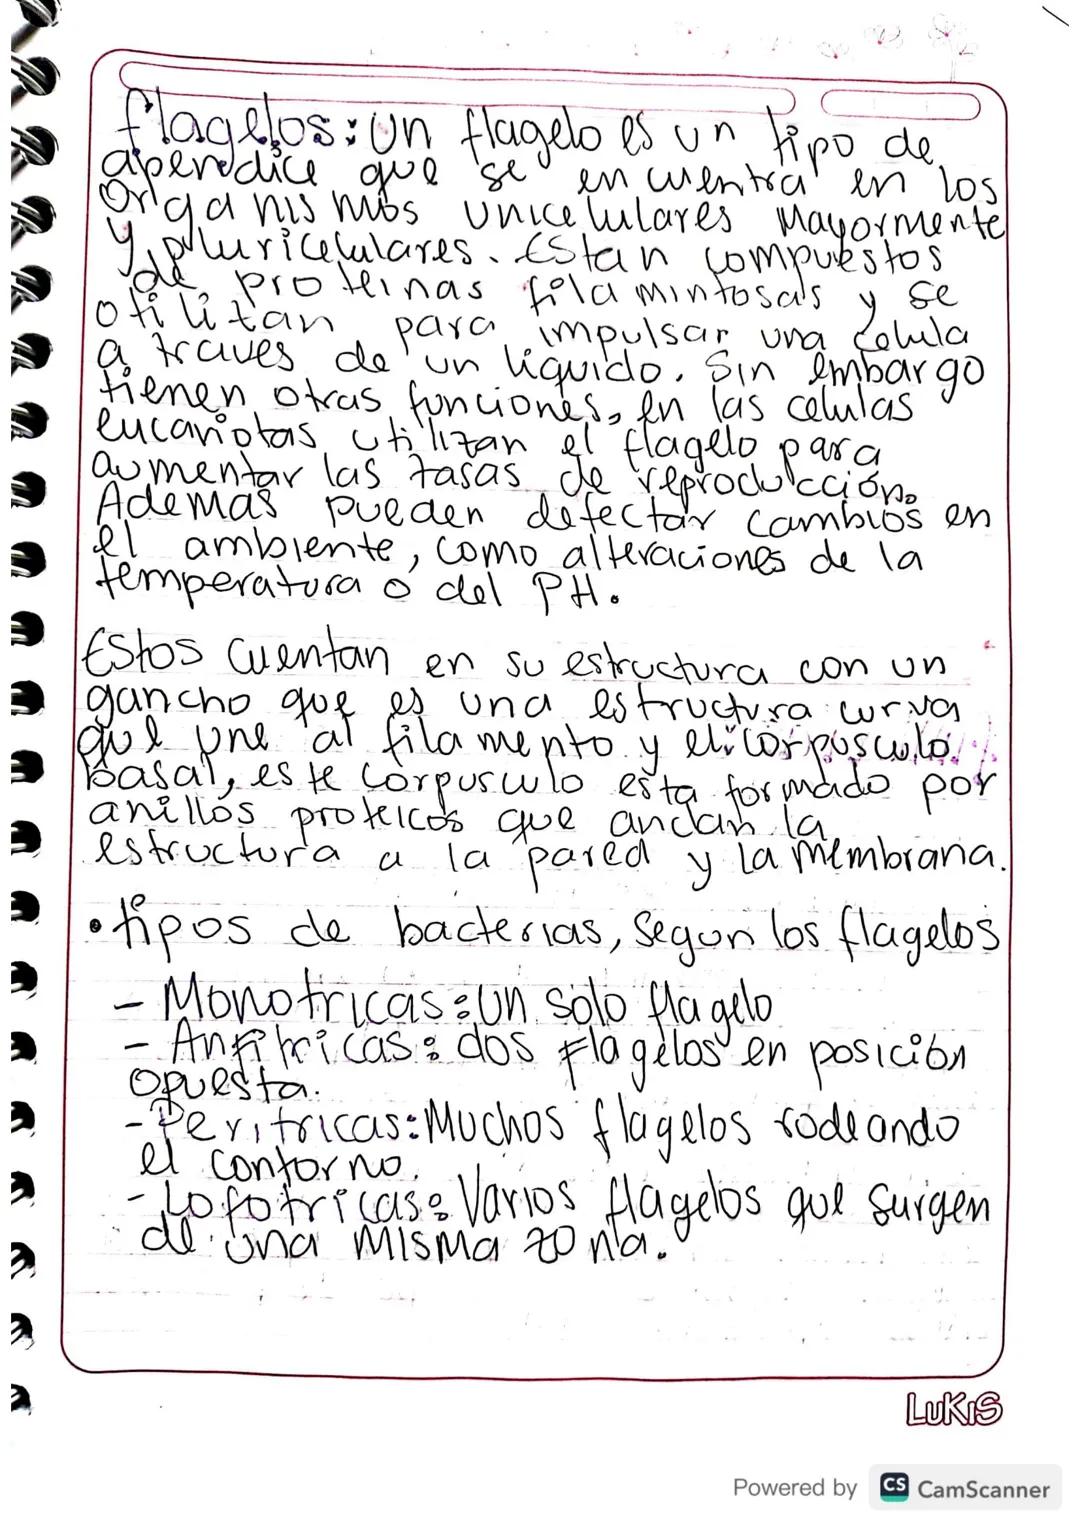 flagelos: un flagelo es un tipo de
apendice que se encuentra en los
Organismos unicelulares Mayormente
y pluricelulares. Estan compuestos
de proteinas filamintosas y se
otilitan para impulsar una celula
a traves de un liquido. Sin embargo
tienen otras funciones, en las celulas
eucariotas utilizan el flagelo para
aumentar las tasas de reproducción.
Ademas pueden detectar cambios en
el ambiente, como alteraciones de la
temperatura o del PH.
Estos cuentan en su estructura con un
gancho que es una estructura curva
que une al filamento y el corpusculo
basal, este corpusculo esta formado por
anillos proteicos que anclan la
estructura a la pared y la membrana.
• tipos de bacterias, Segun los flagelos
- Monotricas: un solo flagelo
- Anfitricas: dos Flagelos en posición
opuesta.
- Peritricas: Muchos flagelos rodeando
el contorno.
- Lofotricas: Varios flagelos que surgen
de una misma zona.
LUKIS
Powered by CS CamScanner